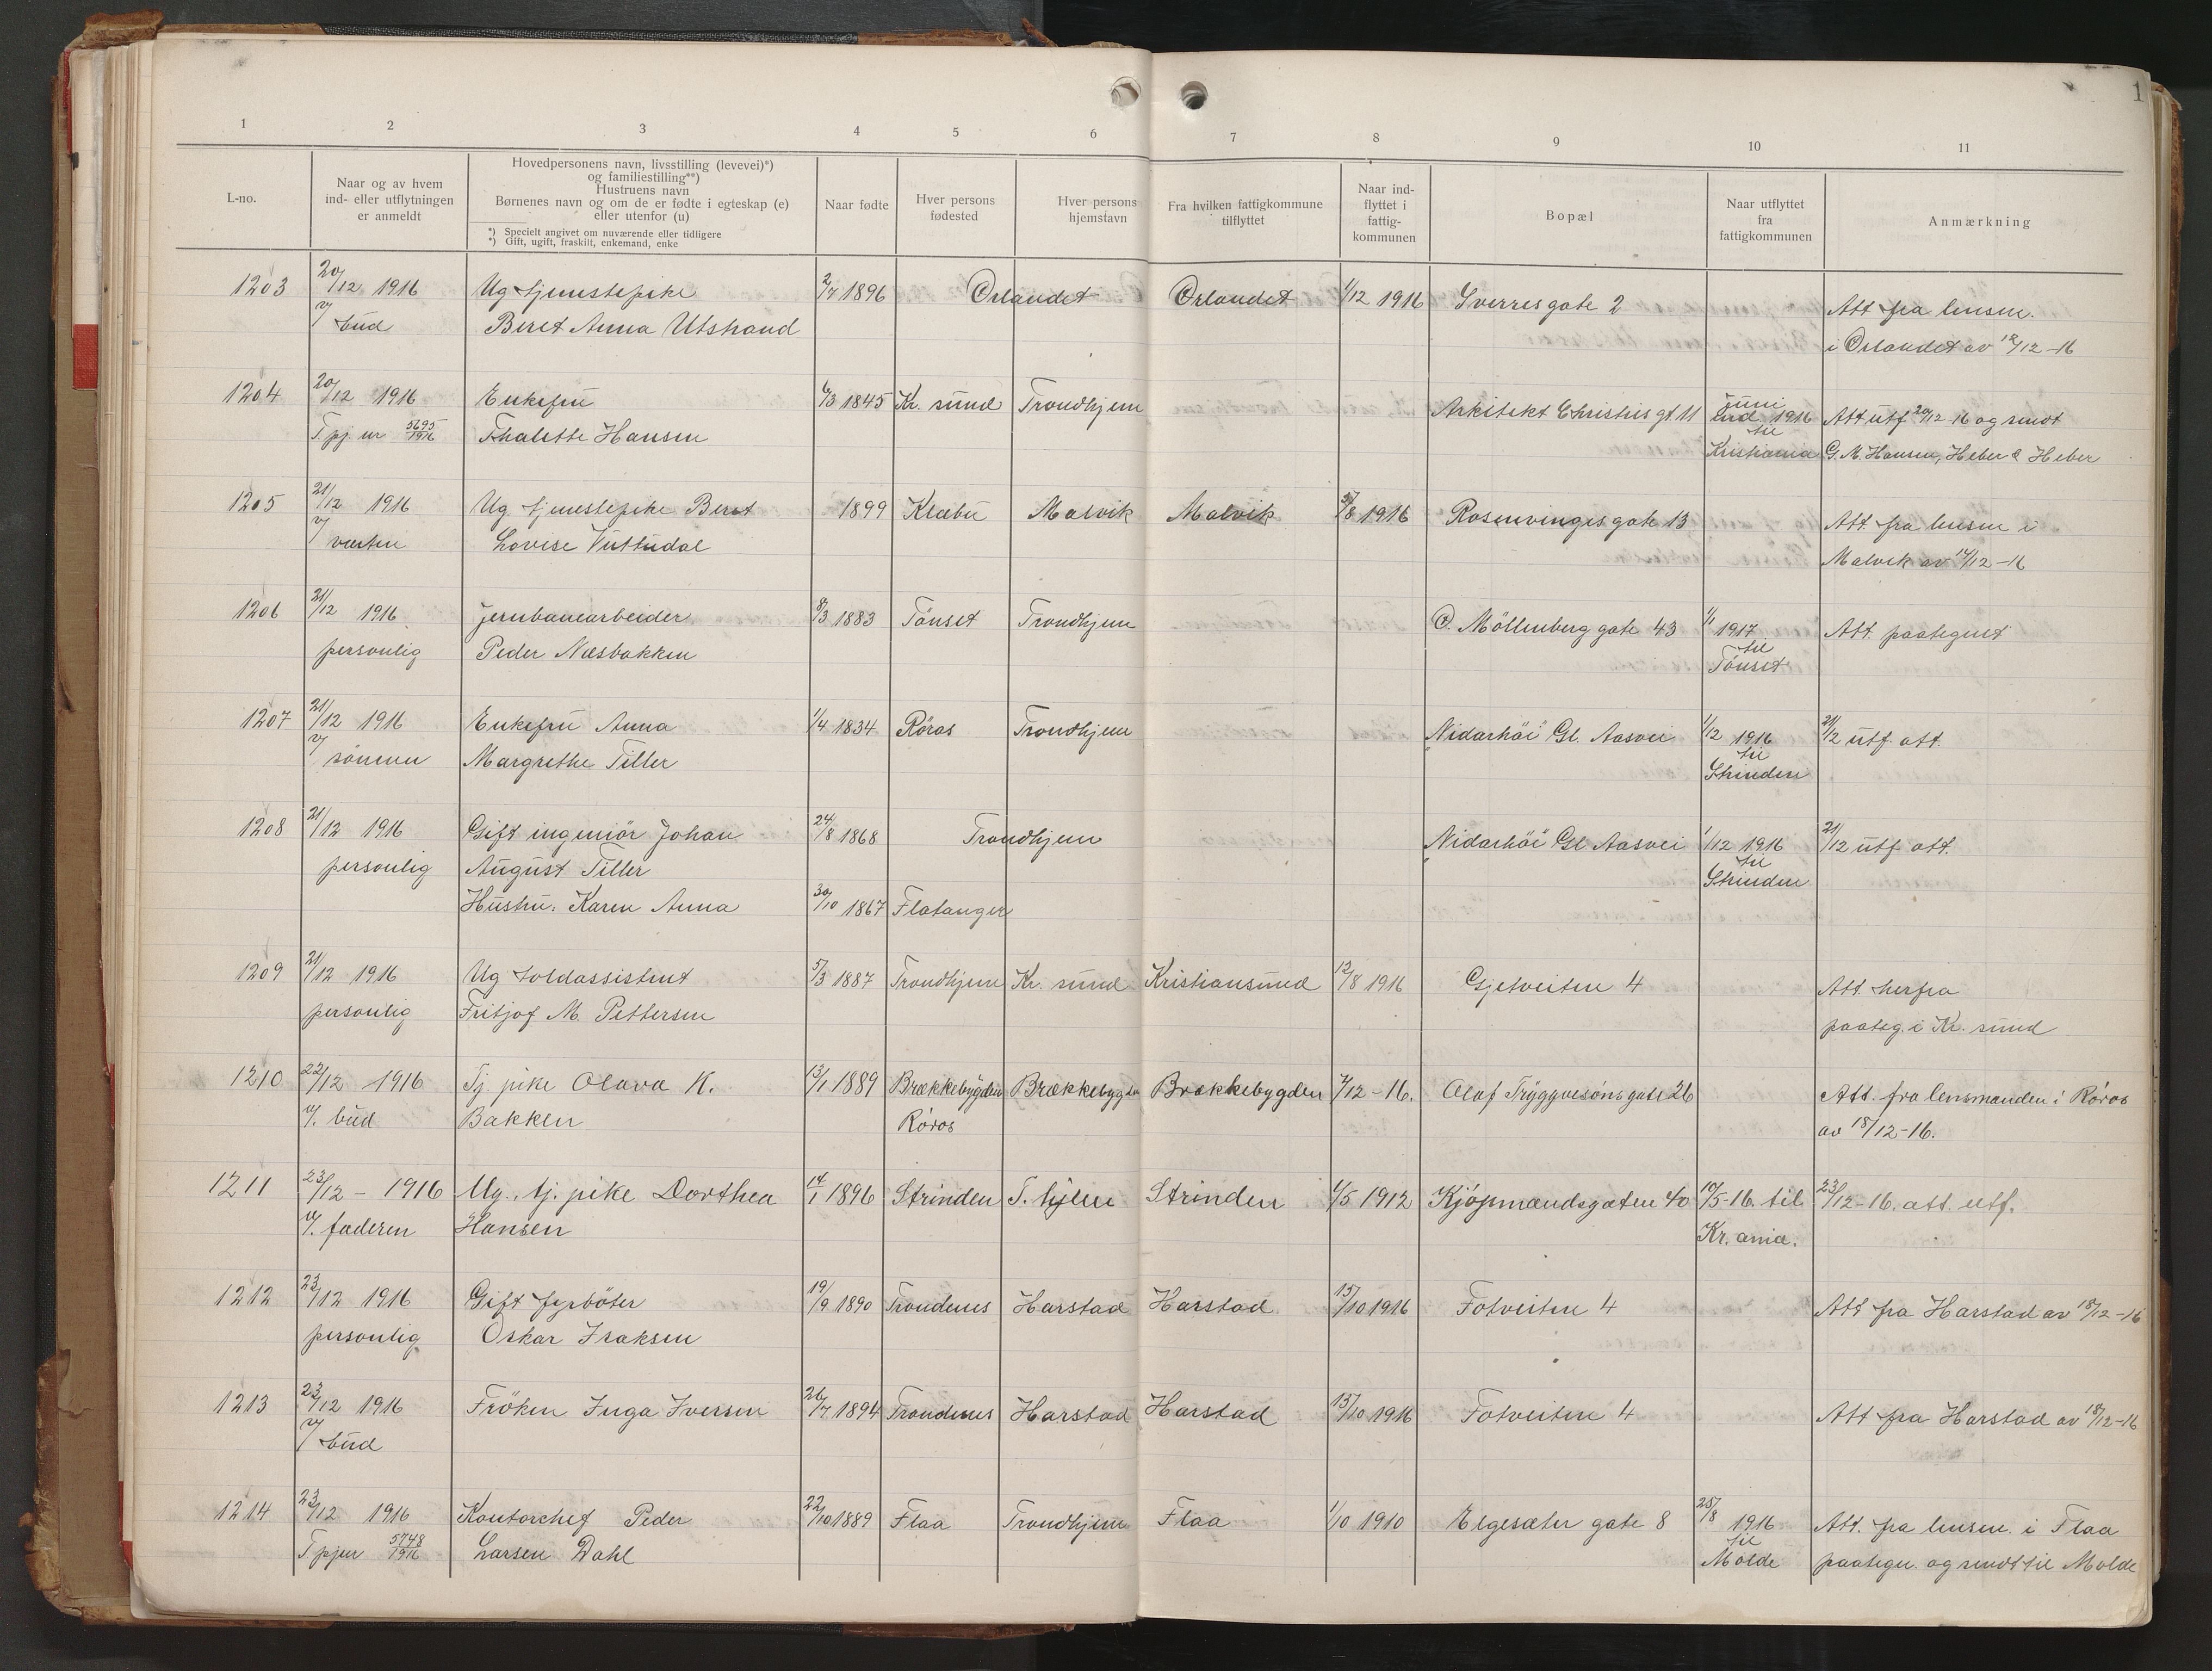 1
1 2 3 4 5 6 7 8 9 10 11
L-no.
Naar og av hvem
ind- eller utflytningen
er anmeldt
Hovedpersonens navn, livsstilling (levevei)*)
og familiestilling**)
Hustruens navn
Børnenes navn og om de er fødte i egteskap (e)
eller utenfor (u)
*) Specielt angivet om nuværende eller tidligere
*) Gift, ugift, fraskilt, enkemand, enke
Naar fødte
Hver persons
fødested
Hver persons
hjemstavn
Fra hvilken fattigkommune
tilflyttet
Naar ind-
flyttet i
fattig-
kommunen
Bopæl
Naar utflyttet
fra
fattigkommunen
Anmærkning
1203 20/12 1916 Ug tjenestepike 2/7 1896 Ørlandet Ørlandet 1/12 1916 Sverresgate 2 Att fra lensm.
v/ bud Beret Anna Utstrand i Ørlandet av 12/12-16
1204 20/12 1916 Enkefru 6/3 1845 Kr. sund Trondhjem Arkitekt Christies gt. 11 Juni 1916 Att utf. 20/12-16 og sendt
T. pj. nr 5695/1916 Thalette Hansen til Kristiania G. M. Hansen, Heber & Heber
1205 21/12 1916 Ug tjenestepike Beret 1899 Klæbu Malvik Malvik /8 1916 Rosenvinges gate 13 Att. fra lensm i
v/ verten Lovise Vuttudal Malvik av 14/12-16
1206 21/12 1916 Jernbanearbeider 8/3 1883 Tönset Trondhjem O. Möllenberg gate 43 1/1 1917 Att. paategnet
personlig Peder Næsbakken til Tönset
1207 21/12 1916 Enkefru Anna 1/4 1834 Röros Trondhjem "Nidarhöi" Gl. Aasvei 1/12 1916 21/12 utf. att.
v/ sönnen Margrethe Tiller til Strinden
1208 21/12 1916 Gift ingeniör Johan 24/8 1868 Trondhjem "Nidarhöi" Gl Aasvei 1/12 1916 21/12 utf. att.
personlig August Tiller til Strinden
Hustru: Karen Anna 30/10 1867 Flatanger
1209 21/12 1916 Ug toldassistent 5/3 1887 Trondhjem Kr. sund Kristiansund 12/8 1916 Gjetveiten 4 Att. herfra
personlig Fritjof M. Pettersen paateg. i Kr. sund
1210 22/12 1916 Tj. pike Olava K. 13/1 1889 Brækkebygden Brækkebygden Brækkebygden 7/12-16. Olaf Tryggvesöns gate 26 Att. fra lensmanden i Röros
v/. bud Bakken Röros av 18/12-16.
1211 23/12 - 1916 Ug. tj. pike Dorthea 14/1 1896 Strinden T. hjem Strinden 1/5 1912 Kjøpmandsgaten 40 10/5-16. til 23/12-16. att. utf.
v/. faderen Hansen Kr.ania.
1212 23/12 1916 Gift fyrböter 19/9 1890 Trondenes Harstad Harstad 15/10 1916 Fotveiten 4 Att fra Harstad av 18/12-16
personlig Oskar Isaksen
1213 23/12 1916 Fröken Inga Iversen 26/7 1894 Trondenes Harstad Harstad 15/10 1916 Fotveiten 4 Att fra Harstad av 18/12-16
v/ bud
1214 23/12 1916 Kontorchef Peder 22/10 1889 Flaa Trondhjem Flaa 1/10 1910 Elgesæter gate 8 25/8 1916 Att. fra lensm. i Flaa
T. pj nr 5748/1916 Larsen Dahl til Molde paategn. og sendt til Molde